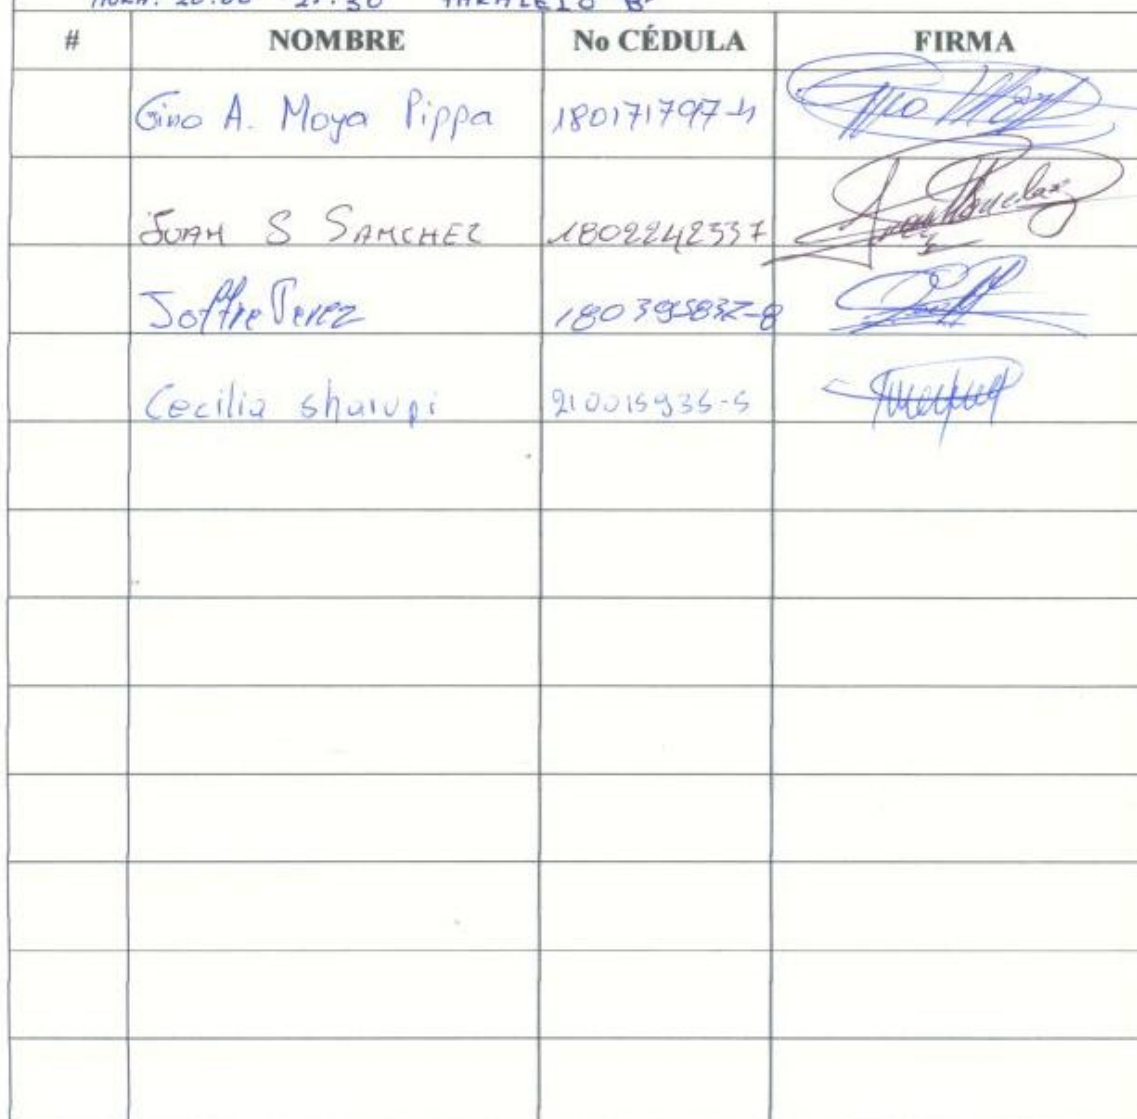 HORA: 20:00 21:30 PARALELO B
# NOMBRE No CÉDULA FIRMA
Gino A. Moya Pippa 180171797-4
JUAN S SANCHEZ 1802242337
Joffre Perez 180395837-8
Cecilia sharupi 210015935-5